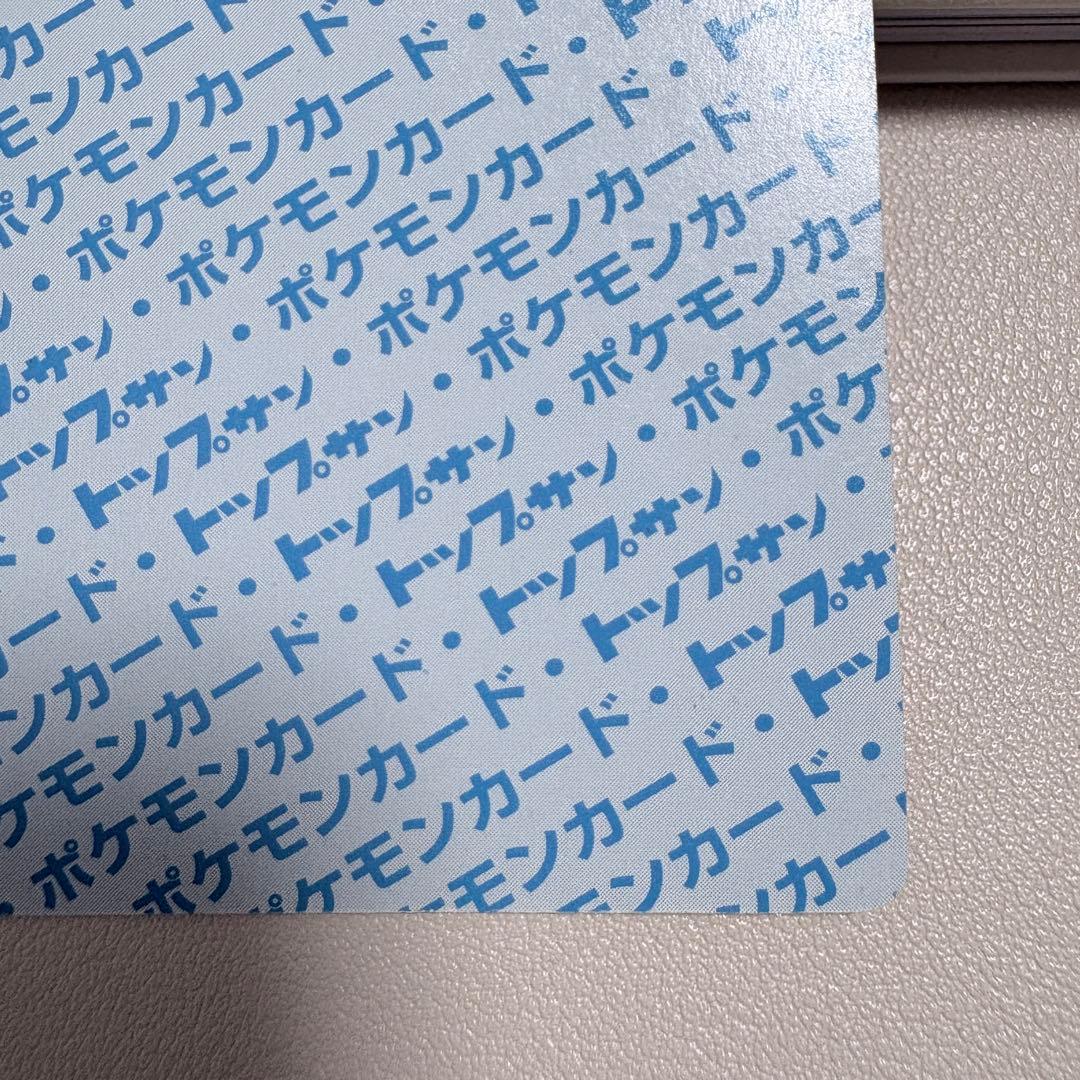 カー
モンカード
ポケモンカード・
ン・ポケモンカード・
プサン・ポケモンカード・ト
トップサン・ポケモンカード・ト
ド・トップサン・ポケモンカード・
カード・トップサン・ポケモンカード
ンカード・トップサン・ポケモンカー
ケモンカード・トップサン・ポケモン
ポケモンカード・トップサン・ポケ
ポケモンカード・トップサン・
ケモンカード・トップサ
モンカード・トッ
ンカード・
カード・
カー